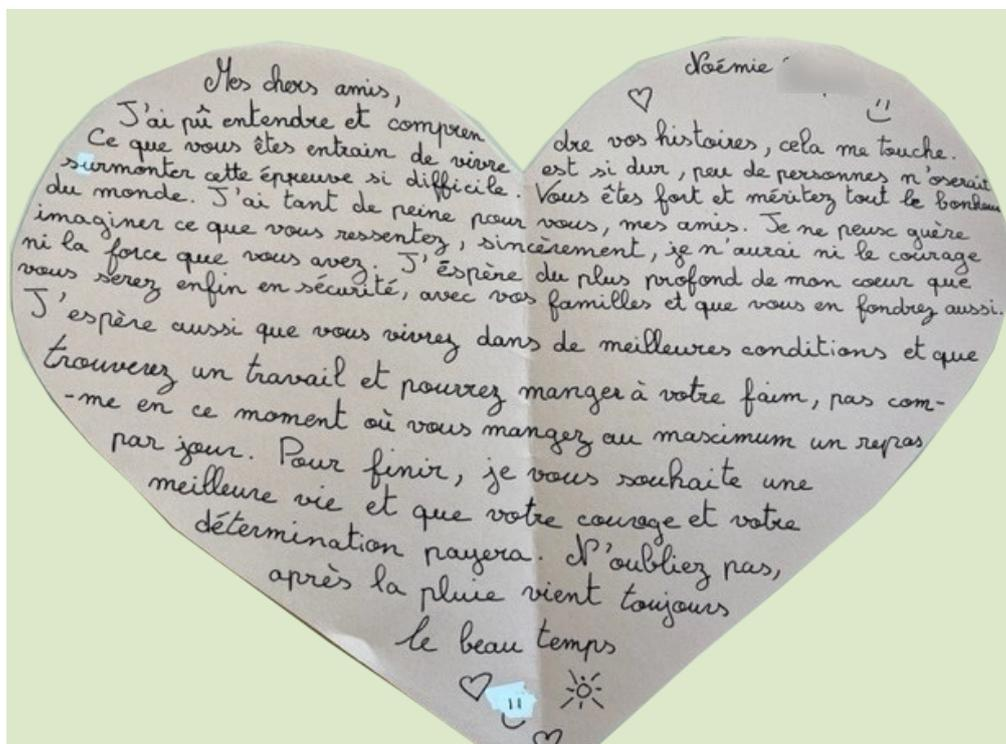 Noémie
Mes chers amis,
J'ai pû entendre et compren
dre vos histoires, cela me touche.
Ce que vous êtes entrain de vivre est si dur, peu de personnes n'oserait
surmonter cette épreuve si difficile. Vous êtes fort et méritez tout le bonheur
du monde. J'ai tant de peine pour vous, mes amis. Je ne peux guère
imaginer ce que vous ressentez, sincèrement, je n'aurai ni le courage
ni la force que vous avez. J'éspère du plus profond de mon coeur que
vous serez enfin en sécurité, avec vos familles et que vous en fondrez aussi.
J'espère aussi que vous vivrez dans de meilleures conditions et que
trouverez un travail et pourrez manger à votre faim, pas com-
-me en ce moment où vous mangez au maximum un repas
par jour. Pour finir, je vous souhaite une
meilleure vie et que votre courage et votre
détermination payera. N'oubliez pas,
après la pluie vient toujours
le beau temps